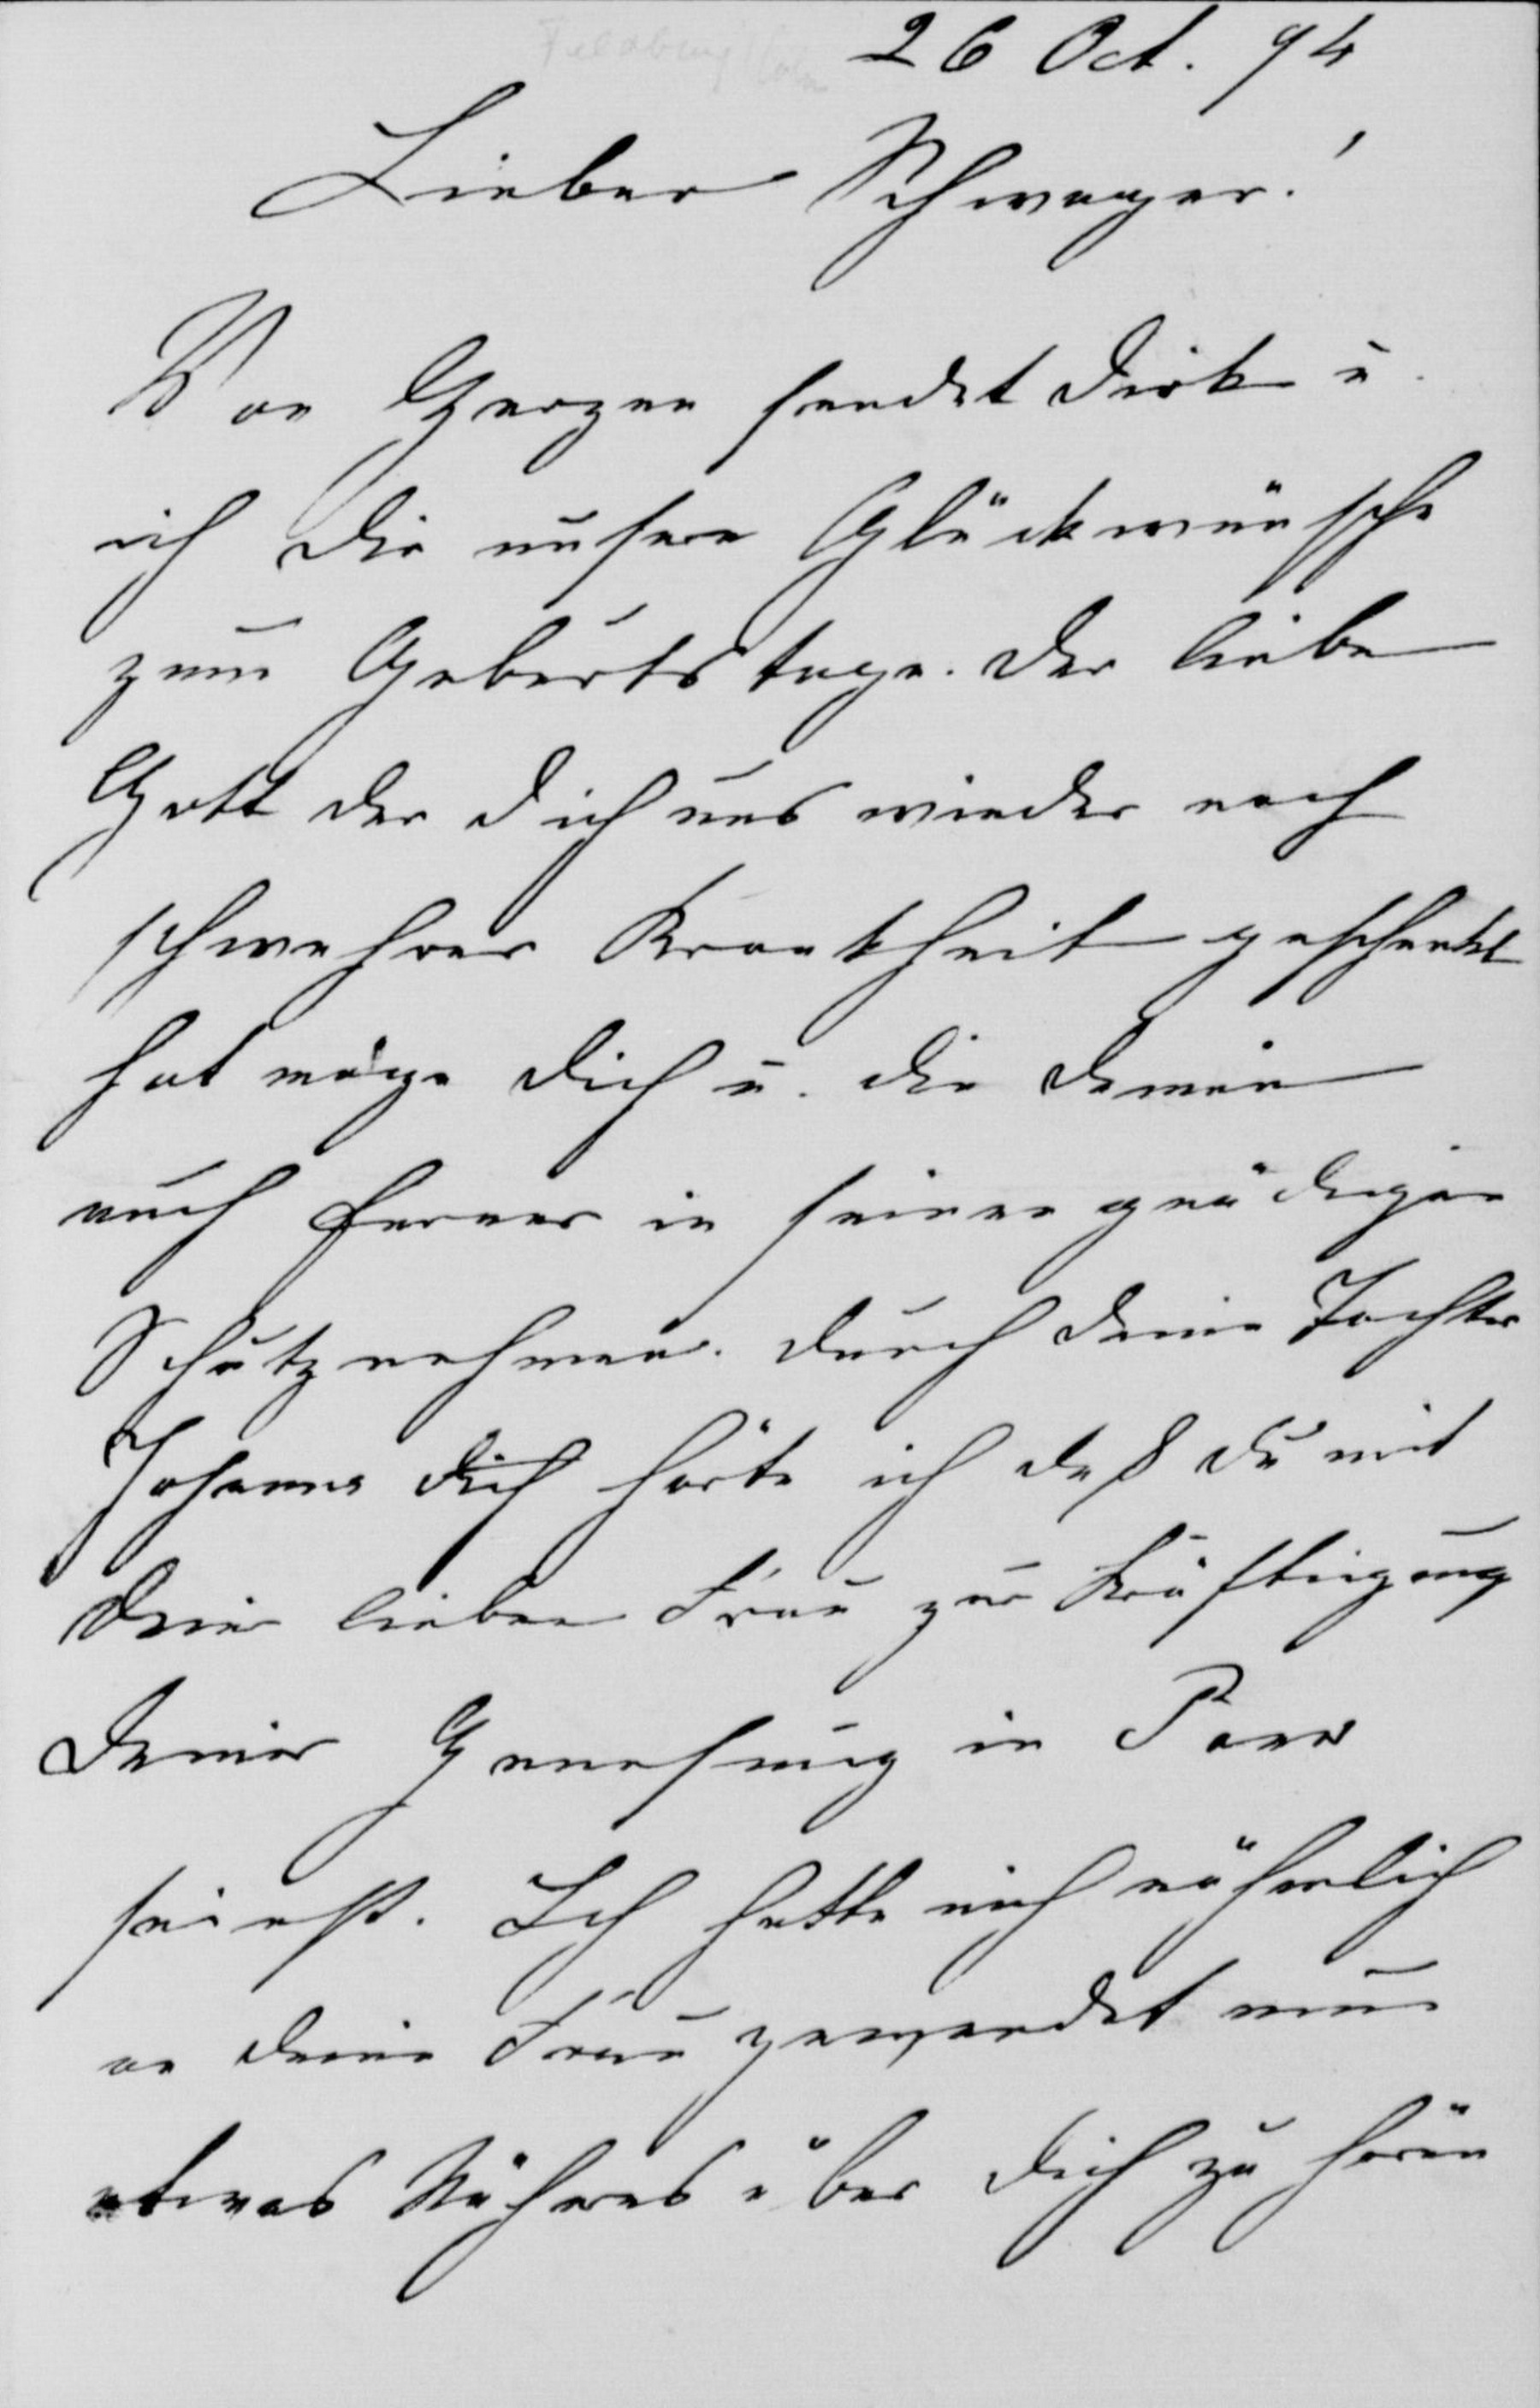 26 Oct. 94
Lieber Schwager!
Von Herzen sendet Dirk u.
ich Dir unsere Glückwünsche
zum Geburtstage. Der liebe
Gott der Dich uns wieder nach
schwehrer Krankheit geschenkt
hat möge Dich u. die Deinen
auch ferner in seinen gnädigen
Schutz nehmen. Durch Deine Tochter
Johanna hörte ich daß Du mit
Deiner lieben Frau zur Kräftigung
Deiner Genesung in
seiest. Ich hatte mich nähmlich
an Deine Frau gewendet um
etwas Näheres über Dich zu hören